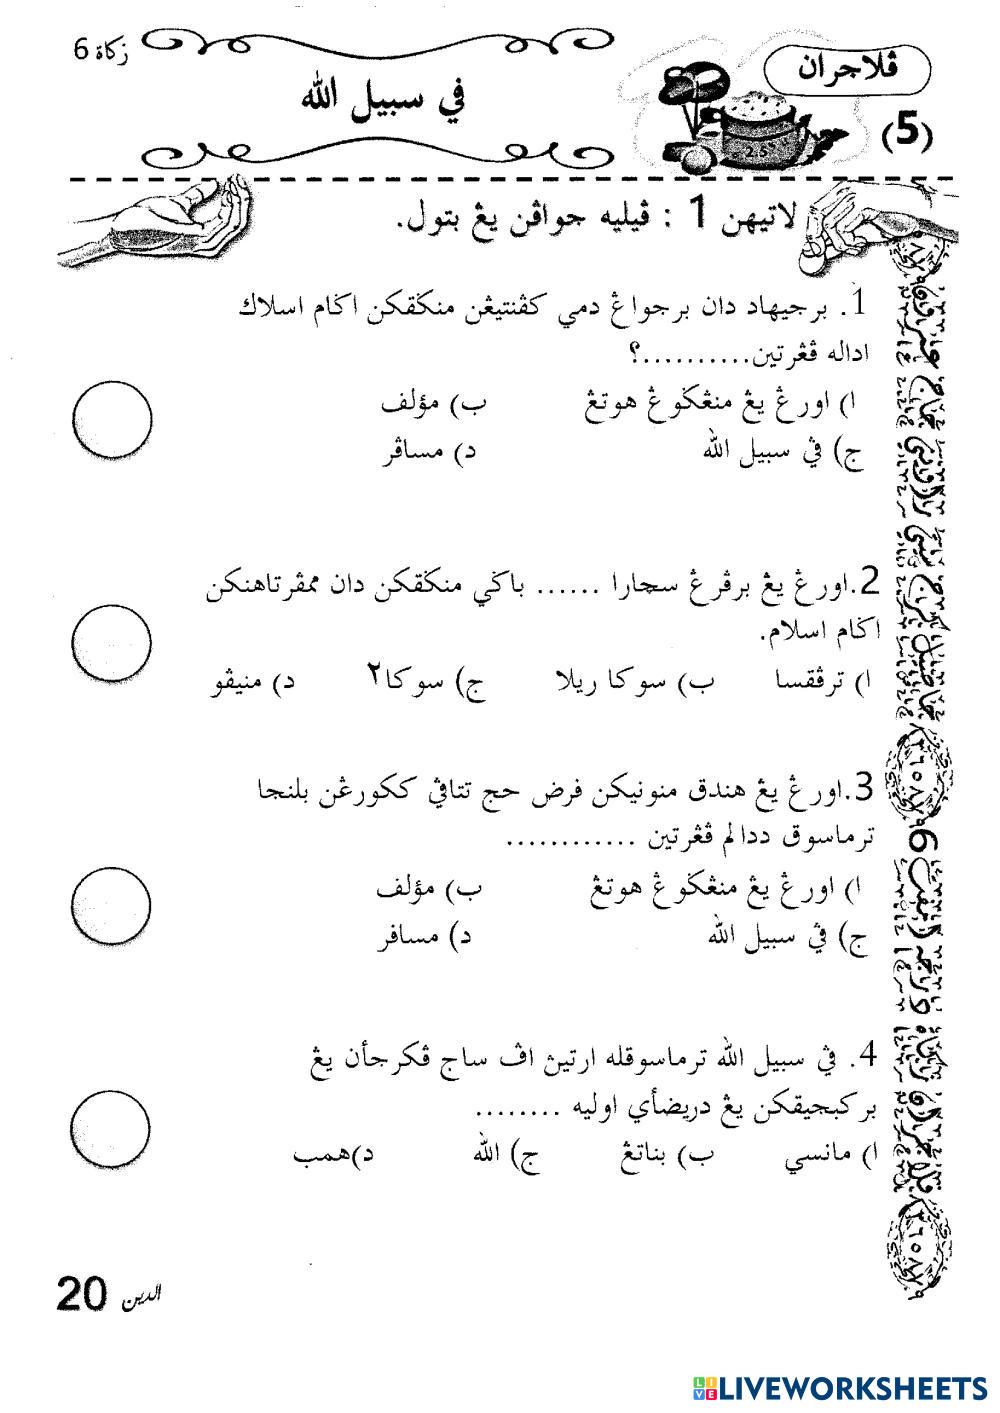 زكاة 6
ڤلاجران
(5)
في سبيل الله
لاتيهن 1 : ڤيليه جواڤن يڠ بتول.
1. برجيهاد دان برجواڠ دمي كڤنتيڠن منڬقكن اڬام اسلاك
اداله ڤڠرتين..........؟
ا) اورڠ يڠ منڠݢوڠ هوتڠ
ب) مؤلف
ج) ڤي سبيل الله
د) مساڤر
2.اورڠ يڠ برڤرڠ سچارا ...... باڬي منڬقكن دان ممڤرتاهنكن
اڬام اسلام.
ا) ترڤقسا
ب) سوكا ريلا
ج) سوكا٢
د) منيڤو
3.اورڠ يڠ هندق منونيكن فرض حج تتاڤي ككورڠن بلنجا
ترماسوق ددالم ڤڠرتين ............
ا) اورڠ يڠ منڠݢوڠ هوتڠ
ب) مؤلف
ج) ڤي سبيل الله
د) مسافر
4. ڤي سبيل الله ترماسوقله ارتيڽ اڤ ساج ڤكرجأن يڠ
بركبجيقكن يڠ دريضأي اوليه ........
ا) مانسي
ب) بناتڠ
ج) الله
د)همب
6
20
الدين
LIVEWORKSHEETS